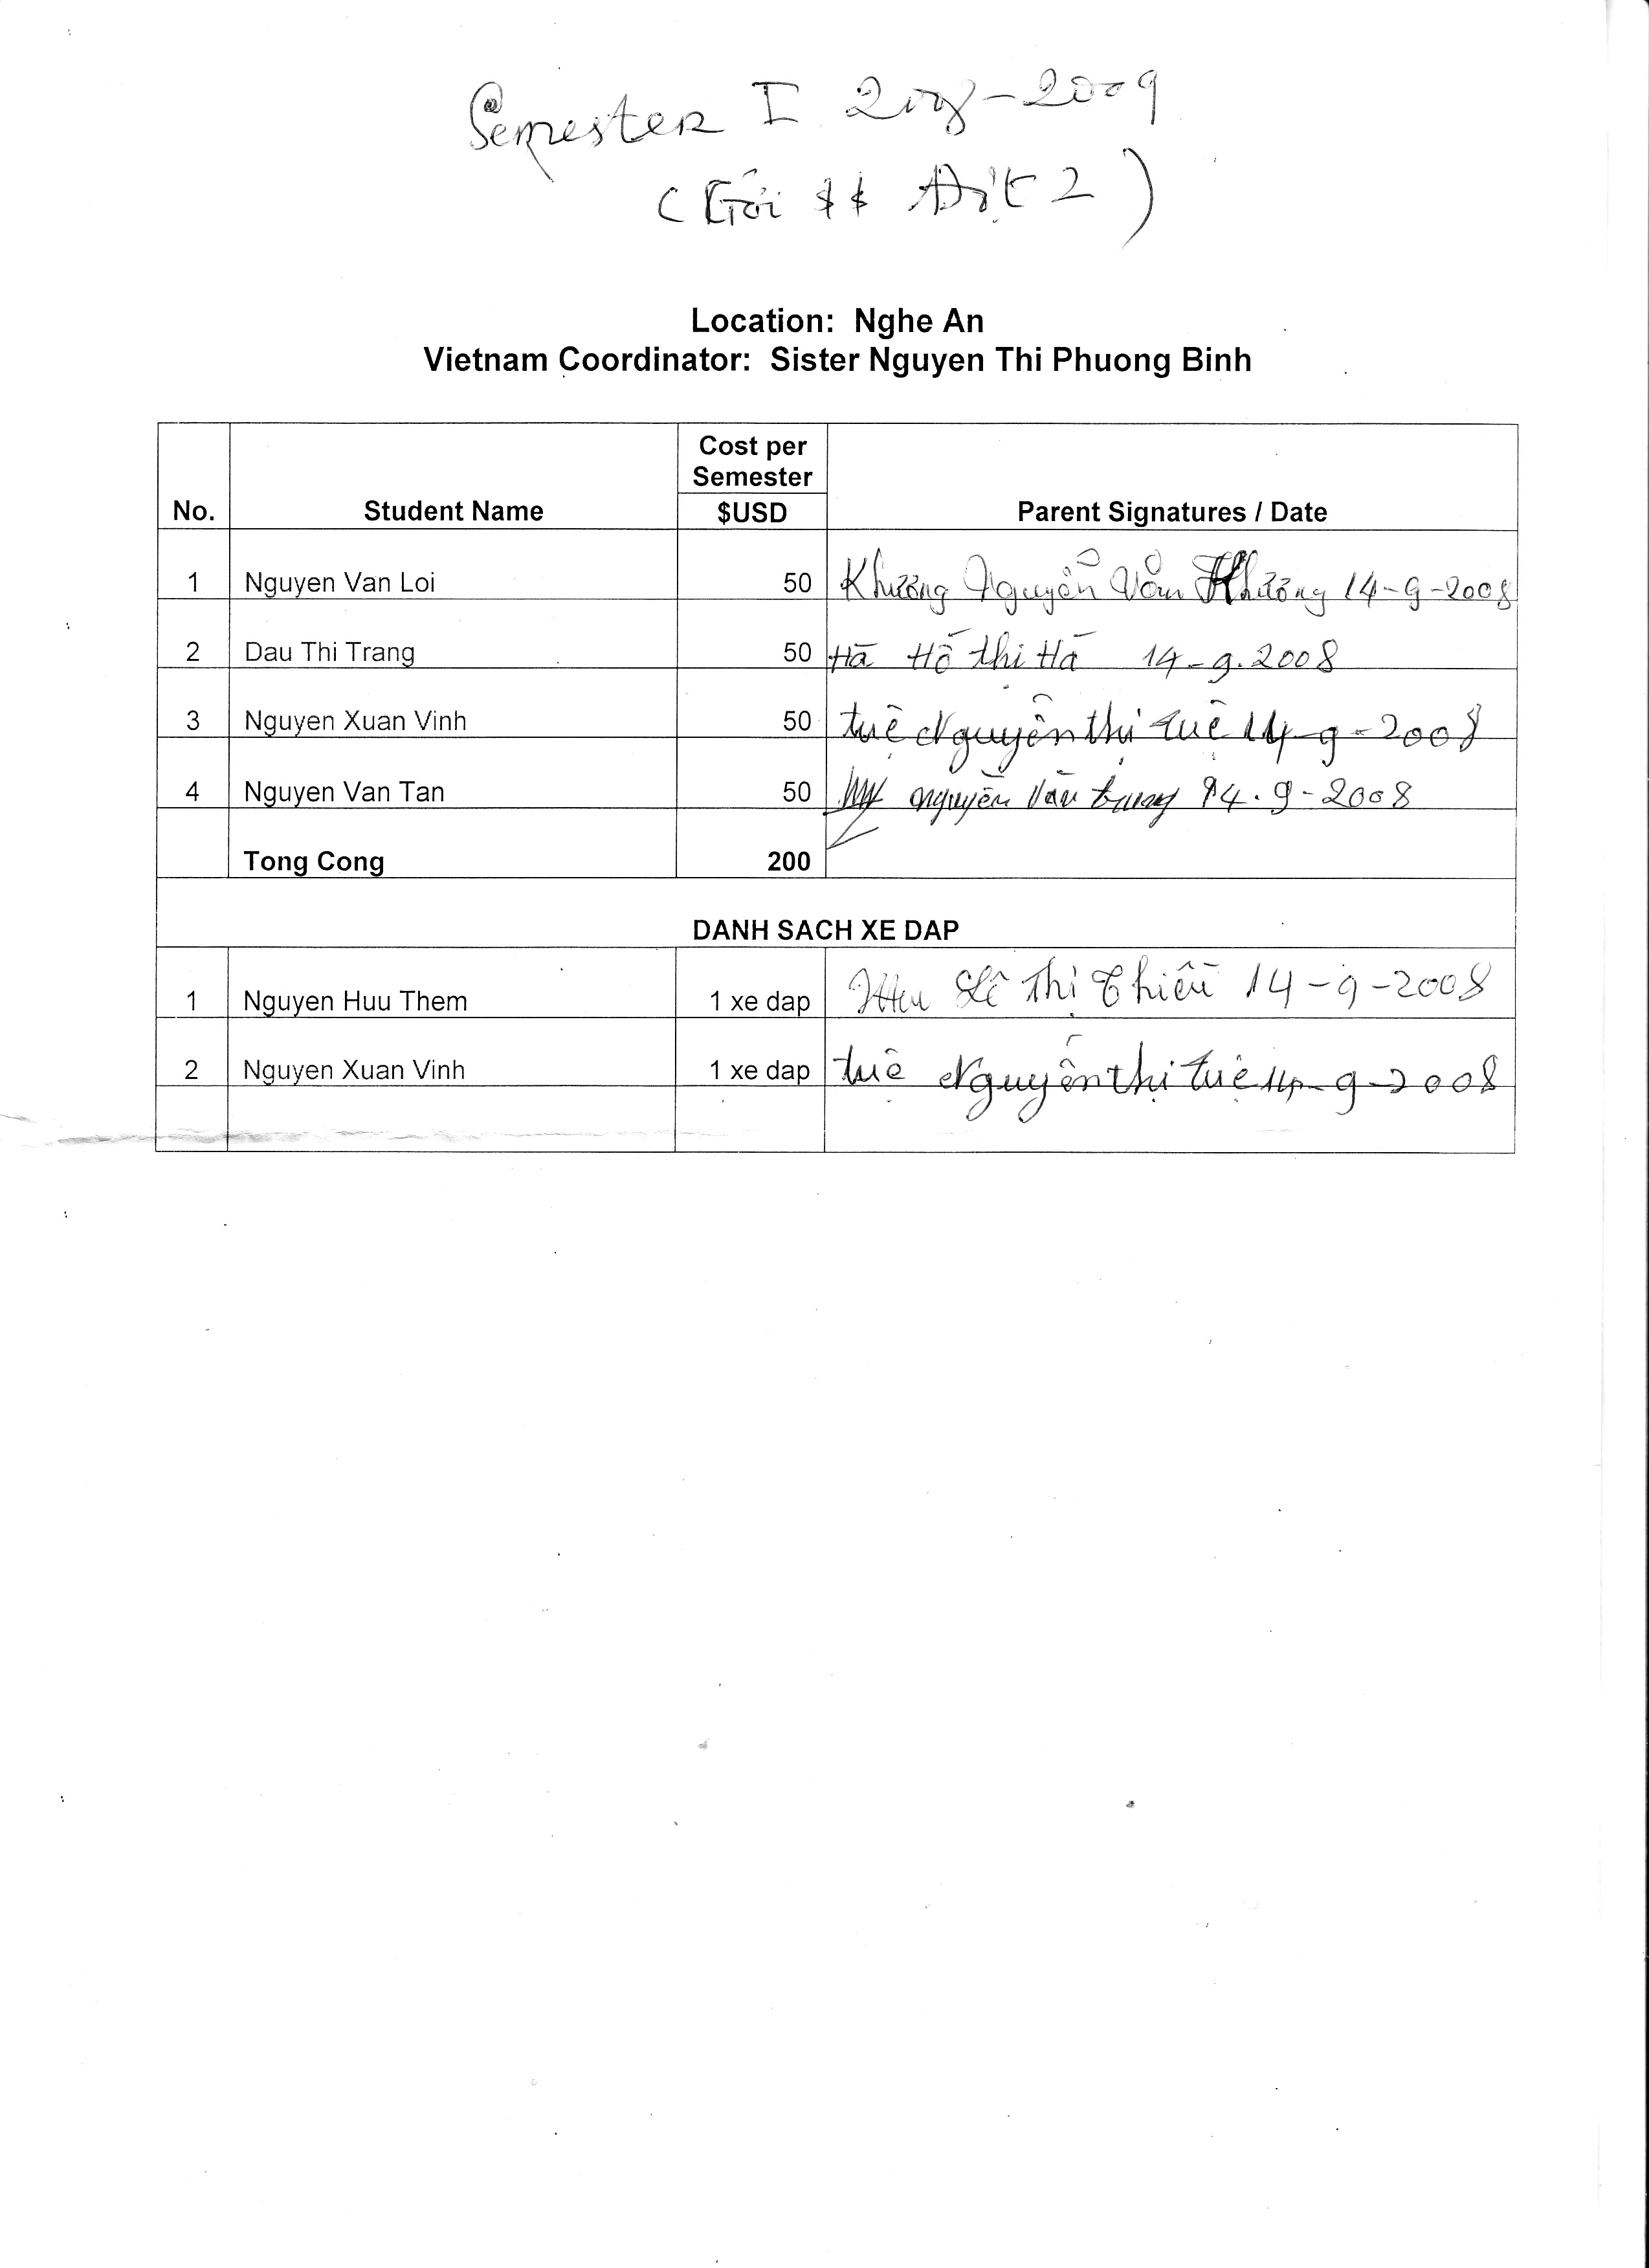 Semester I 2008-2009
(Gởi $$ Đợt 2)
Location: Nghe An
Vietnam Coordinator: Sister Nguyen Thi Phuong Binh
No. Student Name Cost per Semester $USD Parent Signatures / Date
1 Nguyen Van Loi 50 Khương Nguyễn Văn Khương 14-9-2008
2 Dau Thi Trang 50 Hà Hồ thị Hà 14-9.2008
3 Nguyen Xuan Vinh 50 tuệ Nguyễn thị tuệ 14-9-2008
4 Nguyen Van Tan 50 nguyễn văn 14.9-2008
Tong Cong 200
DANH SACH XE DAP
1 Nguyen Huu Them 1 xe dap Lê Thị 14-9-2008
2 Nguyen Xuan Vinh 1 xe dap tuệ Nguyễn thị tuệ 14-9-2008